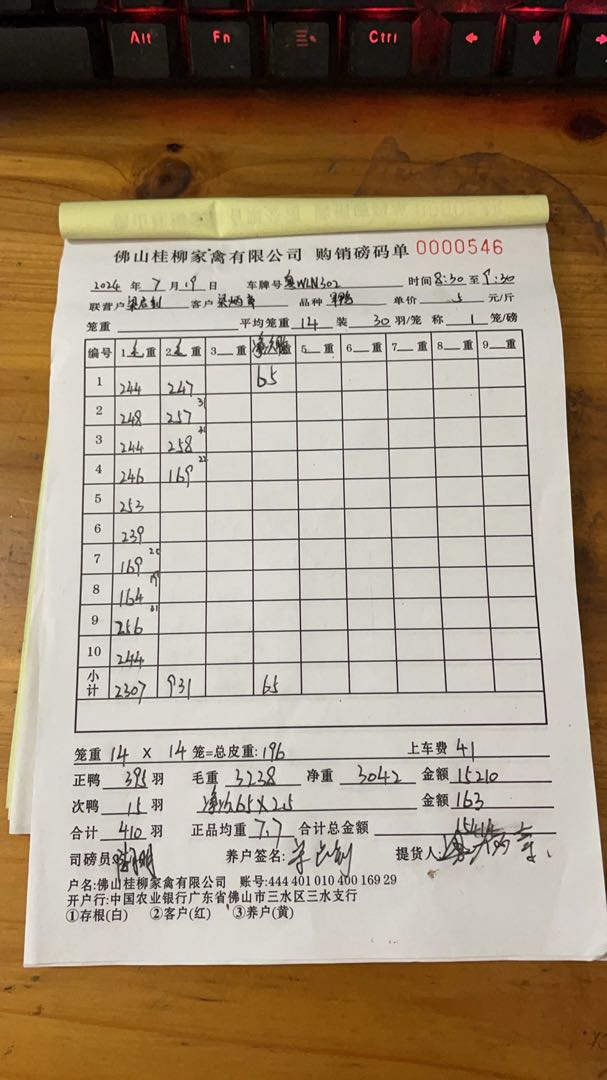 Alt Fn Ctrl
佛山桂柳家禽有限公司 购销磅码单 0000546
2024 年 7 月 19 日 车牌号 粤WLN302 时间 8:30 至 9:30
联营户 客户 品种 单价 5 元/斤
笼重 平均笼重 14 装 30 羽/笼 称 1 笼/磅
编号 1 毛 重 2 毛 重 3 重 5 重 6 重 7 重 8 重 9 重
1 244 247 65
2 248 257 31
3 244 258 31
4 246 169 22
5 253
6 239
7 169 20
8 164 19
9 256 31
10 244
小计 2307 931 65
笼重 14 X 14 笼=总皮重: 196 上车费 41
正鸭 395 羽 毛重 3238 净重 3042 金额 15210
次鸭 15 羽 65 X 2.5 金额 163
合计 410 羽 正品均重 7.7 合计总金额 15414
司磅员: 养户签名: 提货人:
户名:佛山桂柳家禽有限公司 账号:444 401 010 400 169 29
开户行:中国农业银行广东省佛山市三水区三水支行
①存根(白) ②客户(红) ③养户(黄)